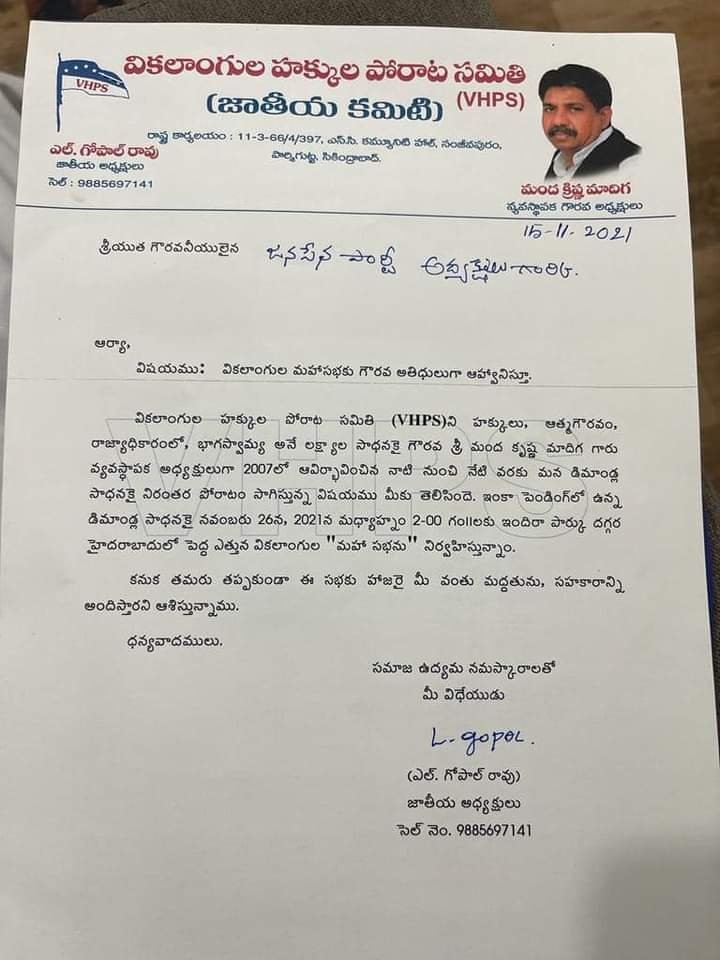 వికలాంగుల హక్కుల పోరాట సమితి
(VHPS)
VHPS
(జాతీయ కమిటి)
రాష్ట్ర కార్యలయం : 11-3-66/4/397, ఎస్.సి. కమ్యూనిటి హాల్, సంజీవపురం,
పార్శిగుట్ట, సికింద్రాబాద్.
ఎల్. గోపాల్ రావు
జాతీయ అధ్యక్షులు
సెల్ : 9885697141
మంద క్రిష్ణ మాదిగ
వ్యవస్థాపక గౌరవ అధ్యక్షులు
15-11-2021
శ్రీయుత గౌరవనీయులైన జనసేన పార్టీ అధ్యక్షులు గారికి.
ఆర్యా,
విషయము: వికలాంగుల మహాసభకు గౌరవ అతిధులుగా ఆహ్వానిస్తూ.
వికలాంగుల హక్కుల పోరాట సమితి (VHPS)ని హక్కులు, ఆత్మగౌరవం,
రాజ్యాధికారంలో, భాగస్వామ్య అనే లక్ష్యాల సాధనకై గౌరవ శ్రీ మంద కృష్ణ మాదిగ గారు
వ్యవస్థాపక అధ్యక్షులుగా 2007లో ఆవిర్భావించిన నాటి నుంచి నేటి వరకు మన డిమాండ్ల
సాధనకై నిరంతర పోరాటం సాగిస్తున్న విషయము మీకు తెలిసిందె. ఇంకా పెండింగ్‌లో ఉన్న
డిమాండ్ల సాధనకై నవంబరు 26న, 2021న మధ్యాహ్నం 2-00 గం||లకు ఇందిరా పార్కు దగ్గర
హైదరాబాదులో పెద్ద ఎత్తున వికలాంగుల "మహా సభను" నిర్వహిస్తున్నాం.
కనుక తమరు తప్పకుండా ఈ సభకు హాజరై మీ వంతు మద్దతును, సహకారాన్ని
అందిస్తారని ఆశిస్తున్నాము.
ధన్యవాదములు.
సమాజ ఉద్యమ నమస్కారాలతో
మీ విధేయుడు
L. gopal.
(ఎల్. గోపాల్ రావు)
జాతీయ అధ్యక్షులు
సెల్ నెం. 9885697141
VHPS